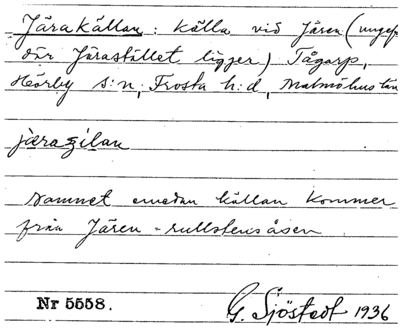 Jära källan: källa vid Jären (ungef.
där Järastället ligger) Tågarp,
Hörby s:n, Frosta h:d, Malmöhus län
järaʒilan
namnet emedan källan kommer
från Jären - rullstensåsen
Nr 5558.
G. Sjöstedt 1936